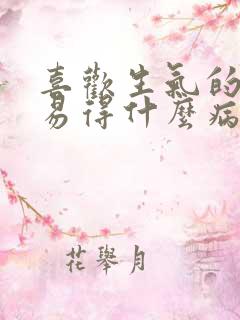 喜歡生氣的
易得什麼病
花舉月